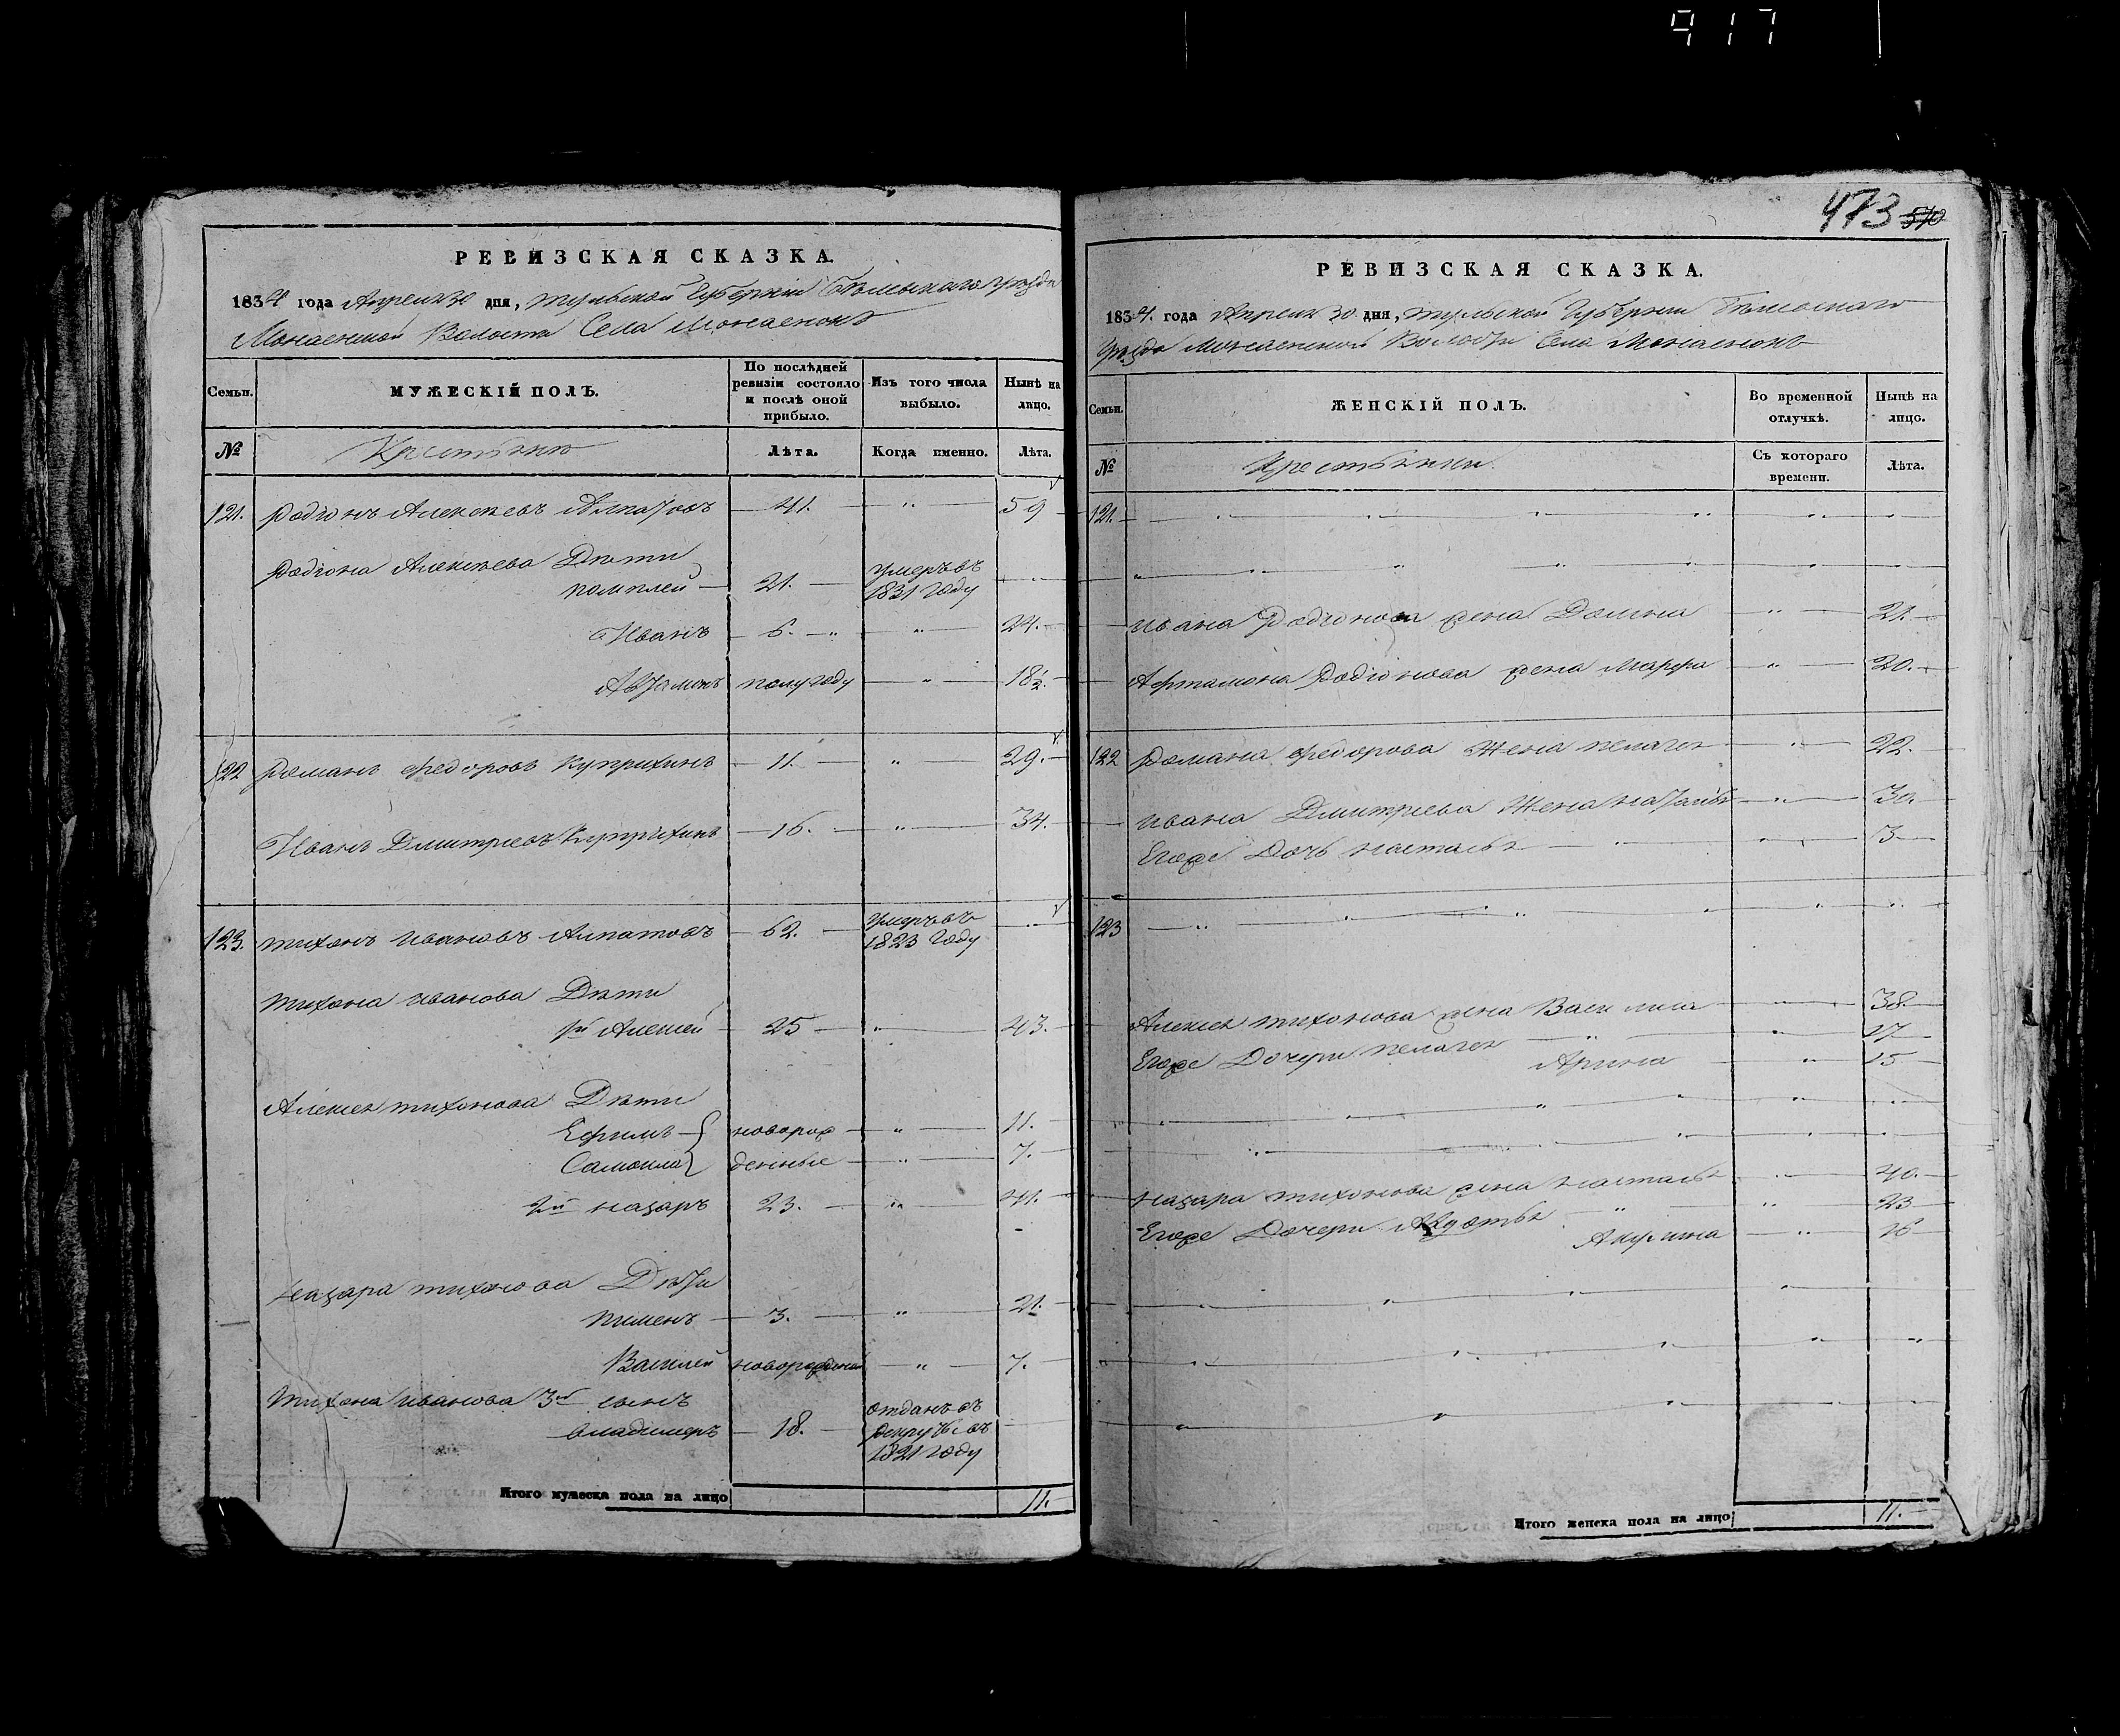 917
РЕВИЗСКАЯ СКАЗКА.
1834 года Апреля 30 дня, Тульской Губернiи Бѣлевскаго уѣзда
Волости Села
Семьи.
МУЖЕСКIЙ ПОЛЪ.
По послѣдней ревизiи состояло и послѣ оной прибыло.
Изъ того числа выбыло.
Нынѣ на лицо.
№
Крестьяне
Лѣта.
Когда именно.
Лѣта.
121. Родiонъ Алексѣевъ Алпатовъ 41. " 59
Родiона Алексѣева Дѣти
21. умеръ въ 1831 году "
Иванъ 6. " 24.
Автамонъ полугоду " 18½.
122 Романъ Федоровъ Куприхинъ 11. " 29.
Иванъ Дмитрiевъ Куприхинъ 16. " 34.
123. Тихонъ Ивановъ Алпатовъ 62. умеръ въ 1823 году "
Тихона Иванова Дѣти
1й Алексей 25 " 43.
Алексея Тихонова Дѣти
Ефимъ новорож " 11.
Самоила денные " 7.
2й Назаръ 23. " 41.
Назара Тихонова Дѣти
Пименъ 3. " 21.
Василей новорожденой " 7.
Тихона Иванова 3й сынъ
Владимеръ 18. отданъ въ рекруты въ 1821 году
Итого мужеска пола на лицо 11.
473 570
РЕВИЗСКАЯ СКАЗКА.
1834. года Апреля 30 дня, Тульской Губернiи Бѣлевскаго
Уѣзда Волости Села
Семьи.
ЖЕНСКIЙ ПОЛЪ.
Во временной отлучкѣ.
Нынѣ на лицо.
№
Крестьянки.
Съ котораго времени.
Лѣта.
121.
Ивана Родiонова жена Домна " 21.
Афтамона Родiонова жена Марфа " 20.
122 Романа Федорова Жена Пелагея " 22.
Ивана Дмитриева Жена Наталья " 30.
Егоже Дочь Настасья " 3
123
Алексея Тихонова жена Василиса " 38.
Егоже Дочери Пелагея " 17
Арина " 15
Назара Тихонова жена Настасья " 40.
Егоже Дочери Авдотья " 23
Акулина " 16
Итого женска пола на лицо 11.